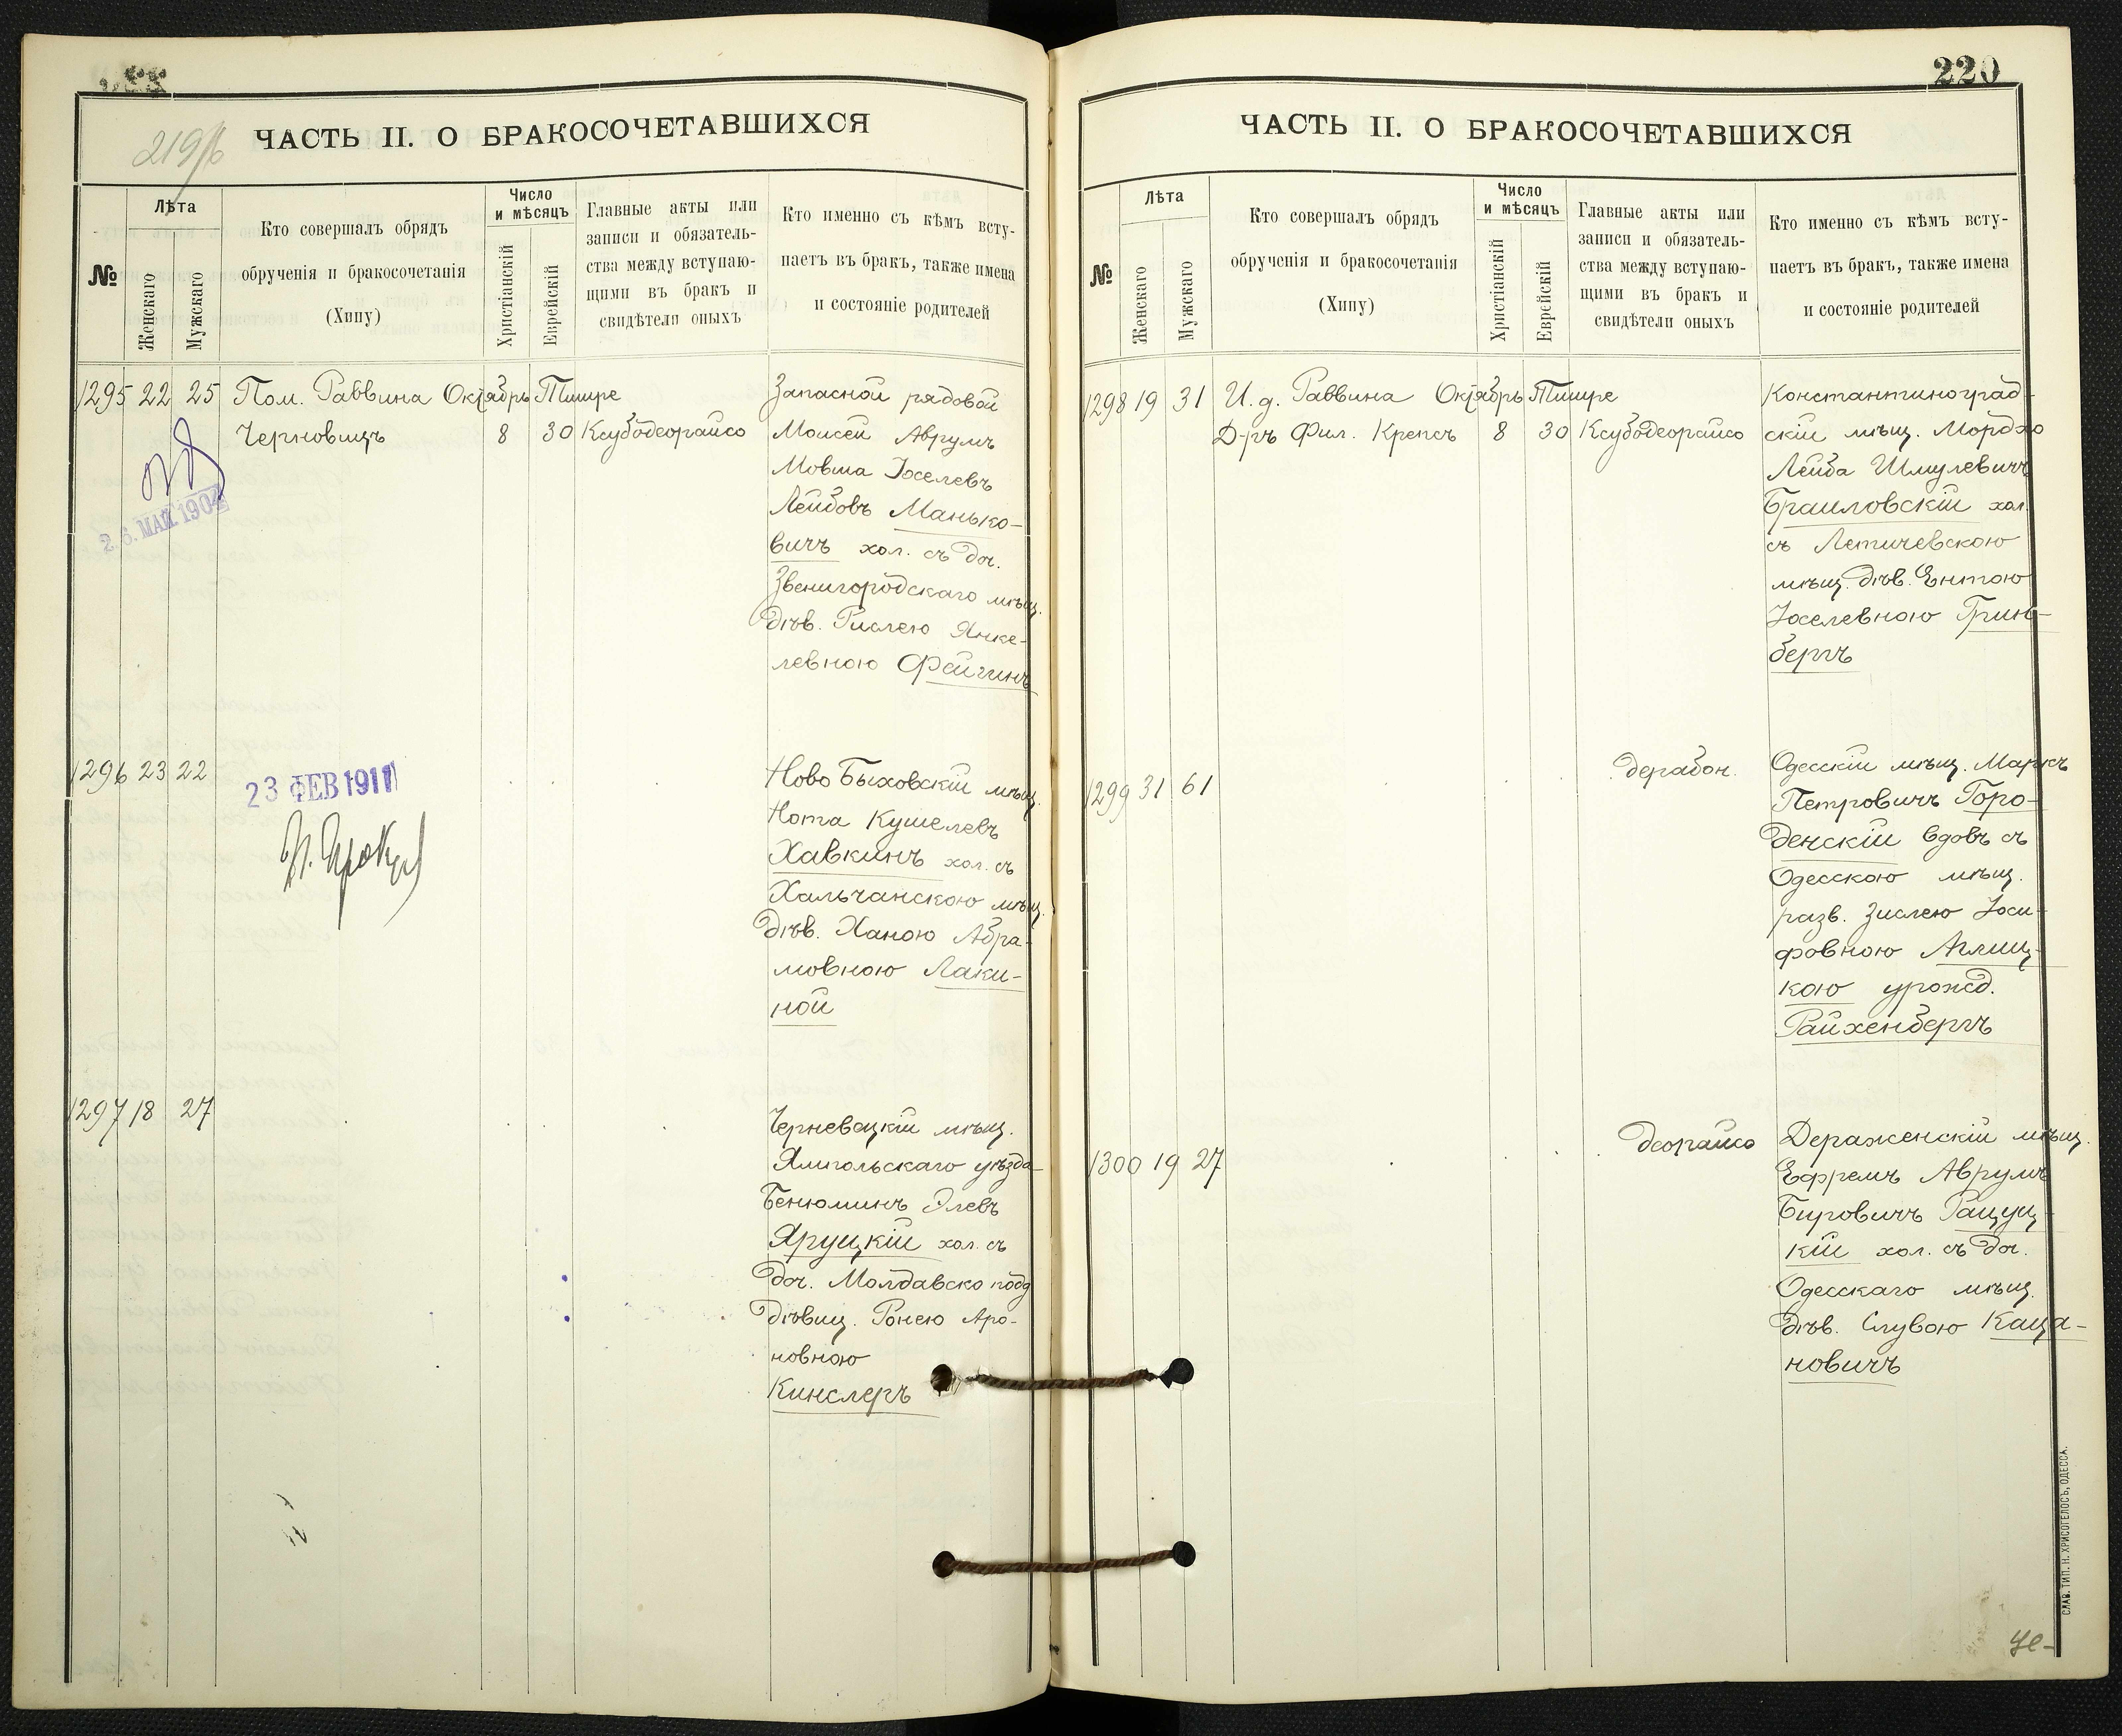 219/б
ЧАСТЬ II. О БРАКОСОЧЕТАВШИХСЯ
№
Лѣта
Женскаго
Мужскаго
Кто совершалъ обрядъ
обрученія и бракосочетанія
(Хипу)
Число
и мѣсяцъ
Христіанскій
Еврейскій
Главные акты или
записи и обязатель-
ства между вступаю-
щими въ бракъ и
свидѣтели оныхъ
Кто именно съ кѣмъ всту-
паетъ въ бракъ, также имена
и состояніе родителей
1295 22 25 Пом. Раввина Октябрь Тишре
Черновицъ 8 30 Ксубодеорайсо
Запасной рядовой
Моисей Аврумъ
Мовша Іоселевъ
Лейбовъ Манько-
вичъ хол. съ доч.
Звенигородскаго мѣщ.
дѣв. Гислею Янке-
левною Фейгинъ
2.6. МАЙ 1904
1296 23 22
23 ФЕВ 1911
Ново Быховскій мѣщ.
Нота Кушелевъ
Хавкинъ хол. съ
Хальчанскою мѣщ.
дѣв. Ханою Абра-
мовною Лаки-
ной
1297 18 27
Черневецкій мѣщ.
Ямпольскаго уѣзда
Бенюминъ Элевъ
Яруцкій хол. съ
доч. Молдавско подд
дѣвиц. Ронею Аро-
новною
Кинслеръ
220
ЧАСТЬ II. О БРАКОСОЧЕТАВШИХСЯ
№
Лѣта
Женскаго
Мужскаго
Кто совершалъ обрядъ
обрученія и бракосочетанія
(Хипу)
Число
и мѣсяцъ
Христіанскій
Еврейскій
Главные акты или
записи и обязатель-
ства между вступаю-
щими въ бракъ и
свидѣтели оныхъ
Кто именно съ кѣмъ всту-
паетъ въ бракъ, также имена
и состояніе родителей
1298 19 31 И. д. Раввина Октябрь Тишре
Д-ръ Фил. Крепсъ 8 30 Ксубодеорайсо
Константиноград-
скій мѣщ. Мордхо
Лейба Шмулевичъ
Браиловскій хол.
съ Летичевскою
мѣщ. дѣв. Ентою
Іоселевною Грин-
бергъ
1299 31 61
дерабон.
Одесскій мѣщ. Маркъ
Петровичъ Горо-
денскій вдовъ съ
Одесскою мѣщ.
разв. Зислею Іоси-
фовною Аглиц-
кою урожд.
Райхенбергъ
1300 19 27
деорайсо
Дераженскій мѣщ.
Ефремъ Аврумъ
Бировичъ Рацуц-
кій хол. съ доч.
Одесскаго мѣщ.
дѣв. Слувою Каца-
новичъ
СЛАВ. ТИП. Н. ХРИСОГЕЛОСЪ, ОДЕССА.